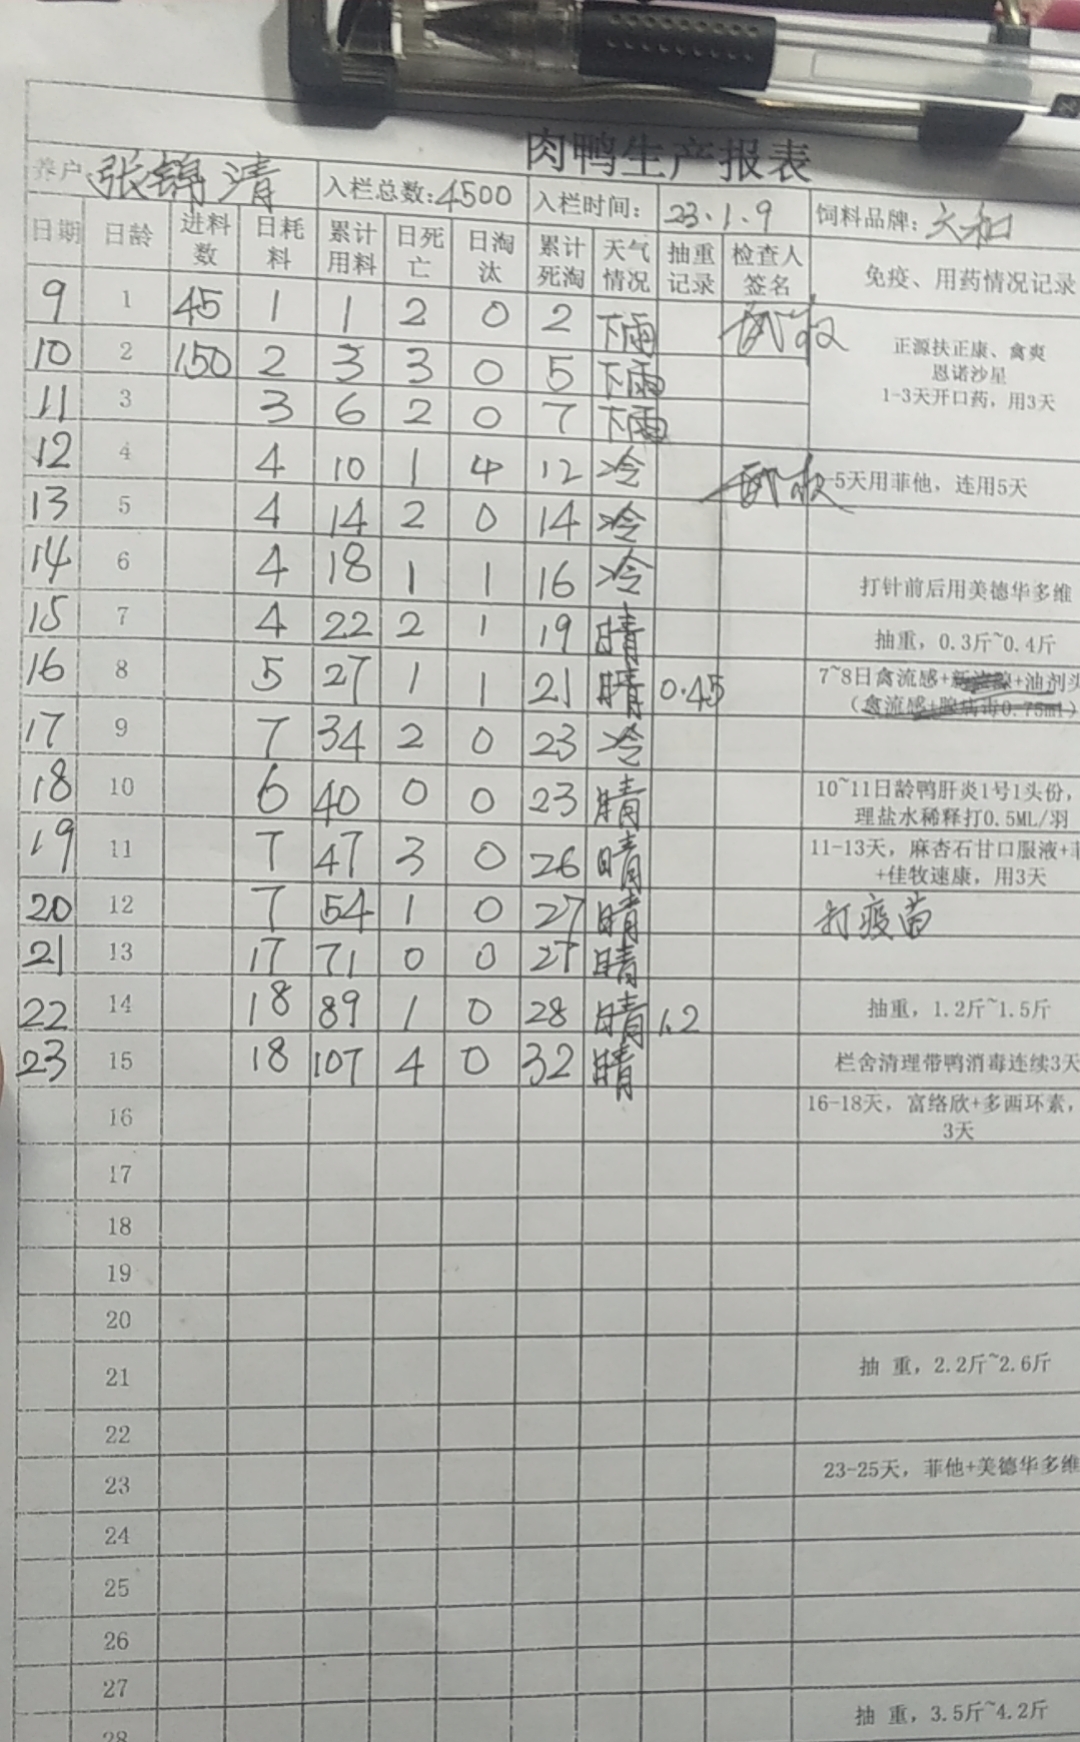 肉鸭生产报表
养户 张锦清 入栏总数:4500 入栏时间: 23.1.9 饲料品牌: 六和
日期 日龄 进料数 日耗料 累计用料 日死亡 日淘汰 累计死淘 天气情况 抽重记录 检查人签名 免疫、用药情况记录
9 1 45 1 1 2 0 2 下雨
10 2 150 2 3 3 0 5 下雨
11 3 3 6 2 0 7 下雨
正源扶正康、禽爽
恩诺沙星
1-3天开口药，用3天
12 4 4 10 1 4 12 冷 5天用菲他，连用5天
13 5 4 14 2 0 14 冷
14 6 4 18 1 1 16 冷 打针前后用美德华多维
15 7 4 22 2 1 19 晴 抽重，0.3斤~0.4斤
16 8 5 27 1 1 21 晴 0.45 7~8日禽流感+新流腺+油剂头
（禽流感+腺病毒0.75ml）
17 9 7 34 2 0 23 冷
18 10 6 40 0 0 23 晴 10~11日龄鸭肝炎1号1头份，
理盐水稀释打0.5ML/羽
19 11 7 47 3 0 26 晴 11-13天，麻杏石甘口服液+菲
+佳牧速康，用3天
20 12 7 54 1 0 27 晴 打疫苗
21 13 17 71 0 0 27 晴
22 14 18 89 1 0 28 晴 1.2 抽重，1.2斤~1.5斤
23 15 18 107 4 0 32 晴 栏舍清理带鸭消毒连续3天
16 16-18天，富络欣+多西环素，
3天
17
18
19
20
21 抽 重，2.2斤~2.6斤
22
23 23-25天，菲他+美德华多维
24
25
26
27
28 抽 重，3.5斤~4.2斤